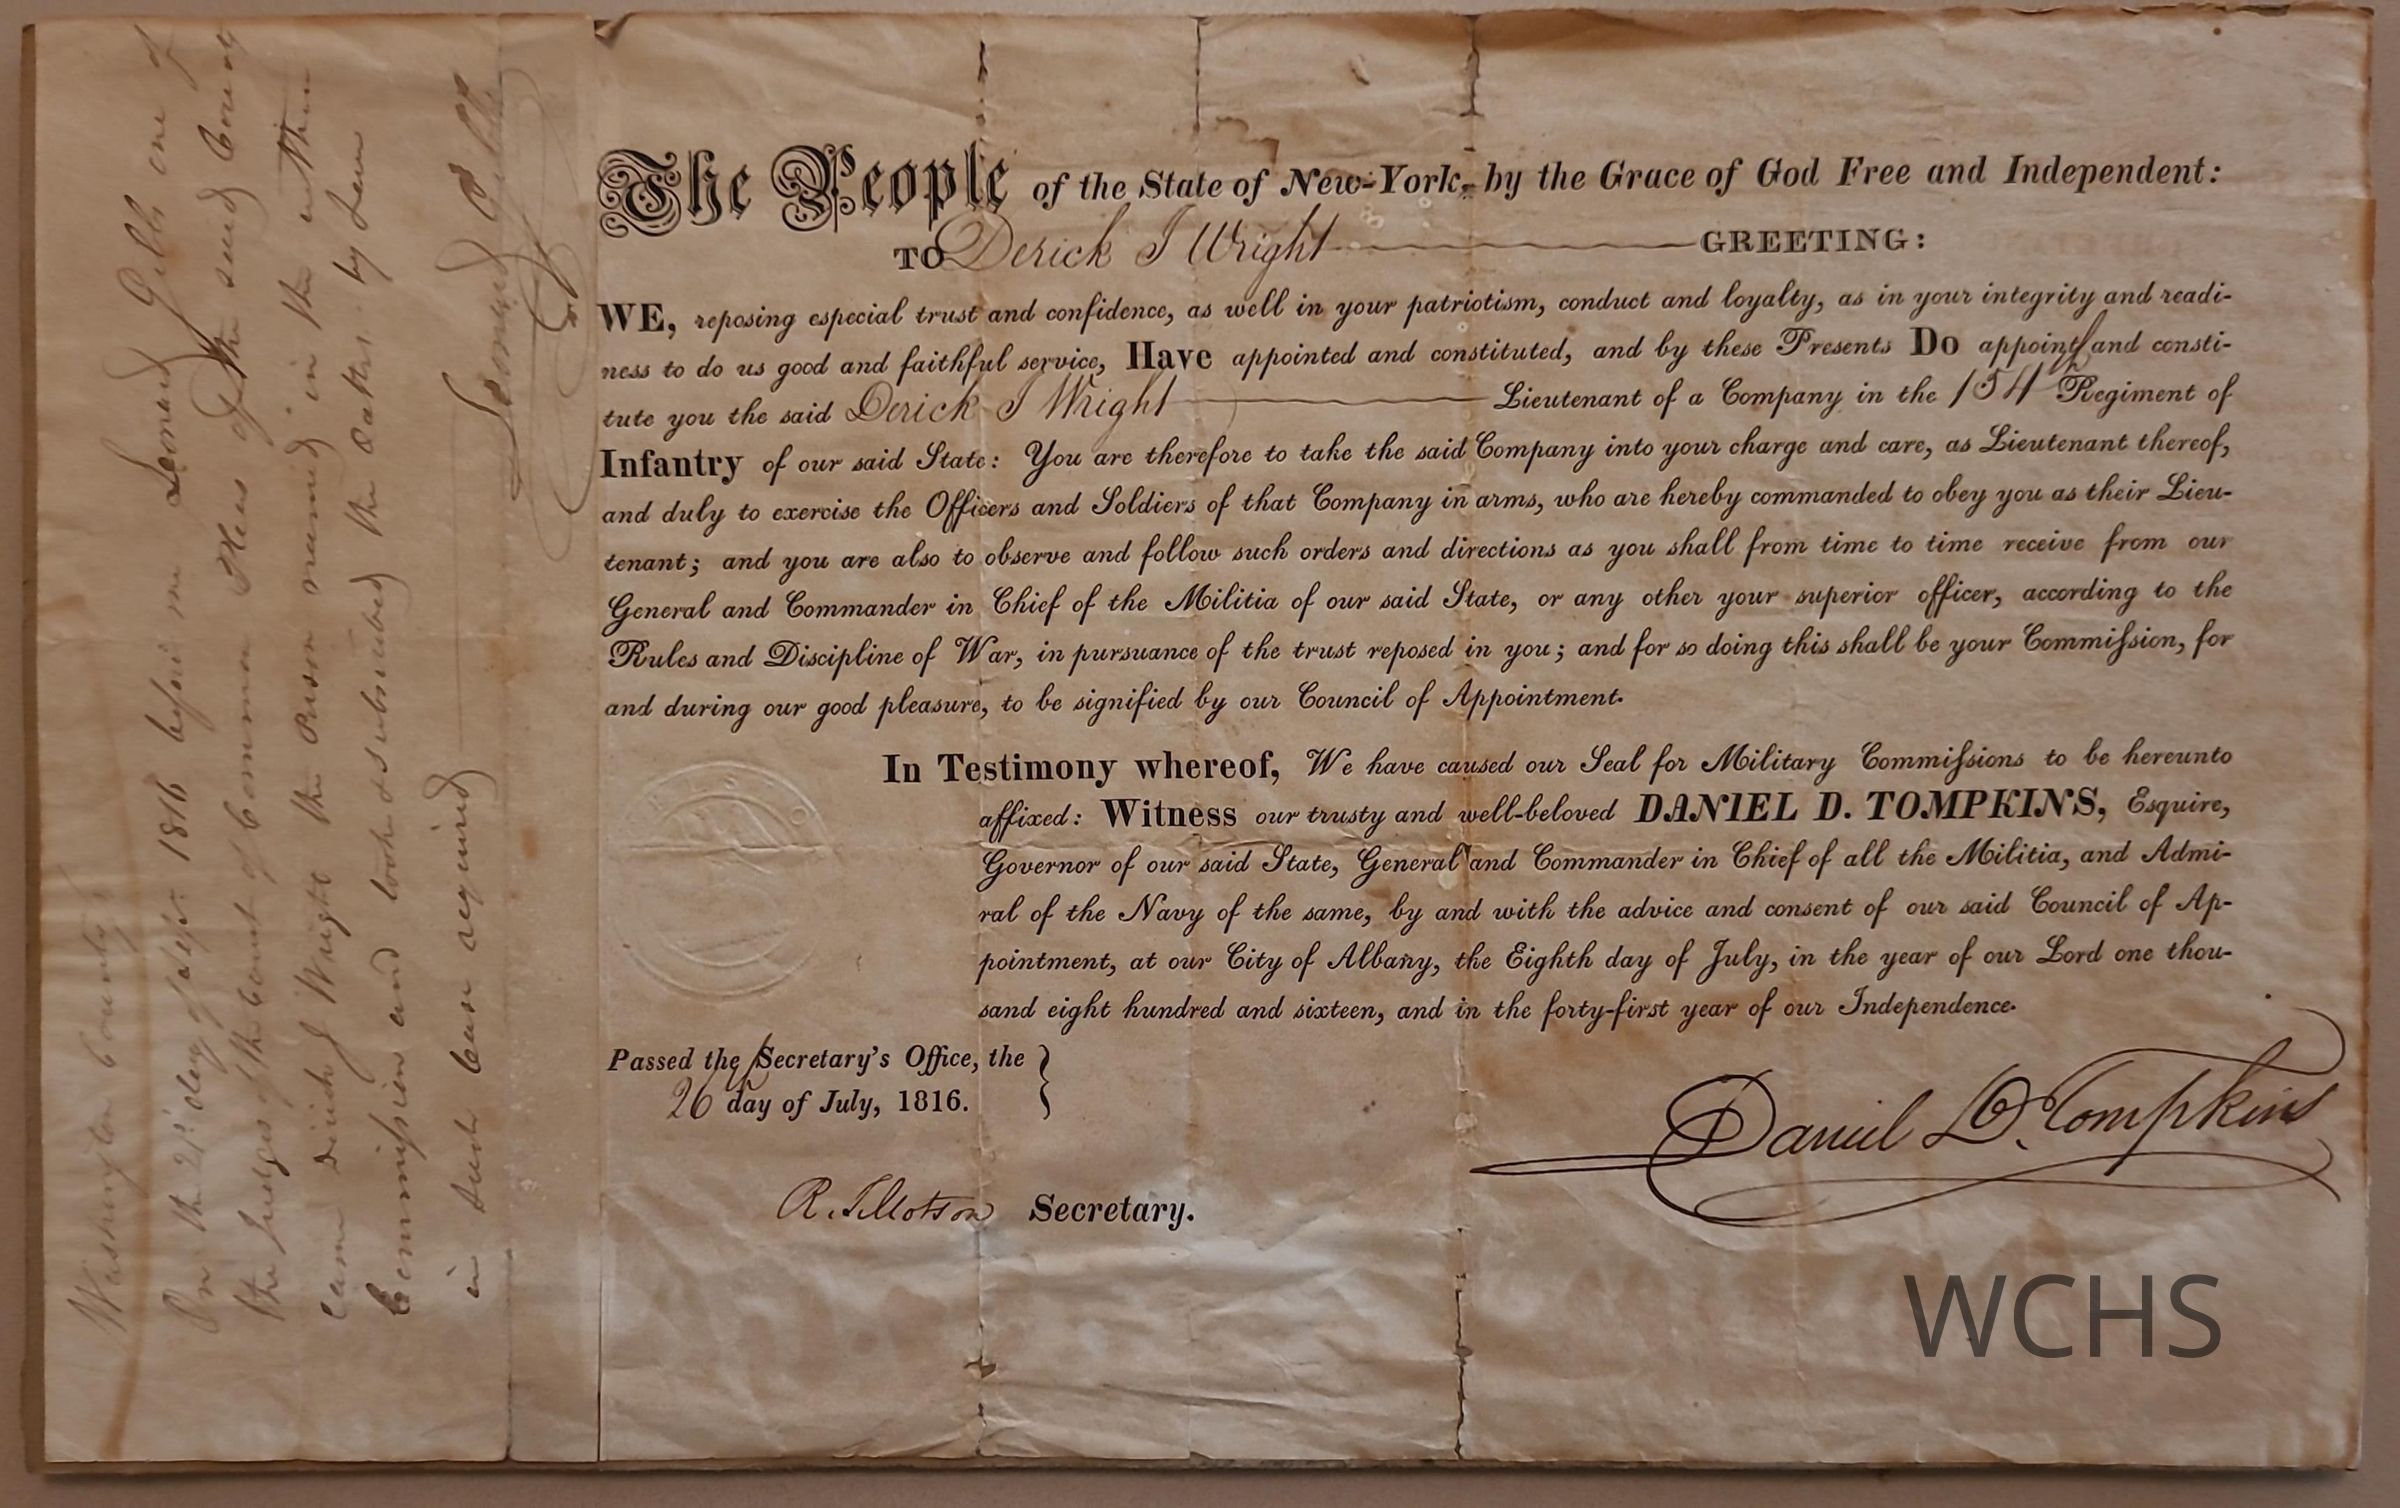 The People of the State of New-York, by the Grace of God Free and Independent:
TO Derick J Wright GREETING:
WE, reposing especial trust and confidence, as well in your patriotism, conduct and loyalty, as in your integrity and readi-
ness to do us good and faithful service, Have appointed and constituted, and by these Presents Do appoint and consti-
tute you the said Derick J Wright Lieutenant of a Company in the 154th Regiment of
Infantry of our said State: You are therefore to take the said Company into your charge and care, as Lieutenant thereof,
and duly to exercise the Officers and Soldiers of that Company in arms, who are hereby commanded to obey you as their Lieu-
tenant; and you are also to observe and follow such orders and directions as you shall from time to time receive from our
General and Commander in Chief of the Militia of our said State, or any other your superior officer, according to the
Rules and Discipline of War, in pursuance of the trust reposed in you; and for so doing this shall be your Commiſsion, for
and during our good pleasure, to be signified by our Council of Appointment.
In Testimony whereof, We have caused our Seal for Military Commiſsions to be hereunto
affixed: Witness our trusty and well-beloved DANIEL D. TOMPKINS, Esquire,
Governor of our said State, General and Commander in Chief of all the Militia, and Admi-
ral of the Navy of the same, by and with the advice and consent of our said Council of Ap-
pointment, at our City of Albany, the Eighth day of July, in the year of our Lord one thou-
sand eight hundred and sixteen, and in the forty-first year of our Independence.
Passed the Secretary's Office, the
26th day of July, 1816.
R. Tillotson Secretary.
Daniel D. Tompkins
Washington County
On the 21st day of Sept. 1816 before me Leonard Gibbs one of
the Judges of the Court of Common Pleas of the said County
came Derick J Wright the Person named in the within
Commiſsion and took & subscribed the Oaths by Law
in such case required
Leonard Gibbs
WCHS